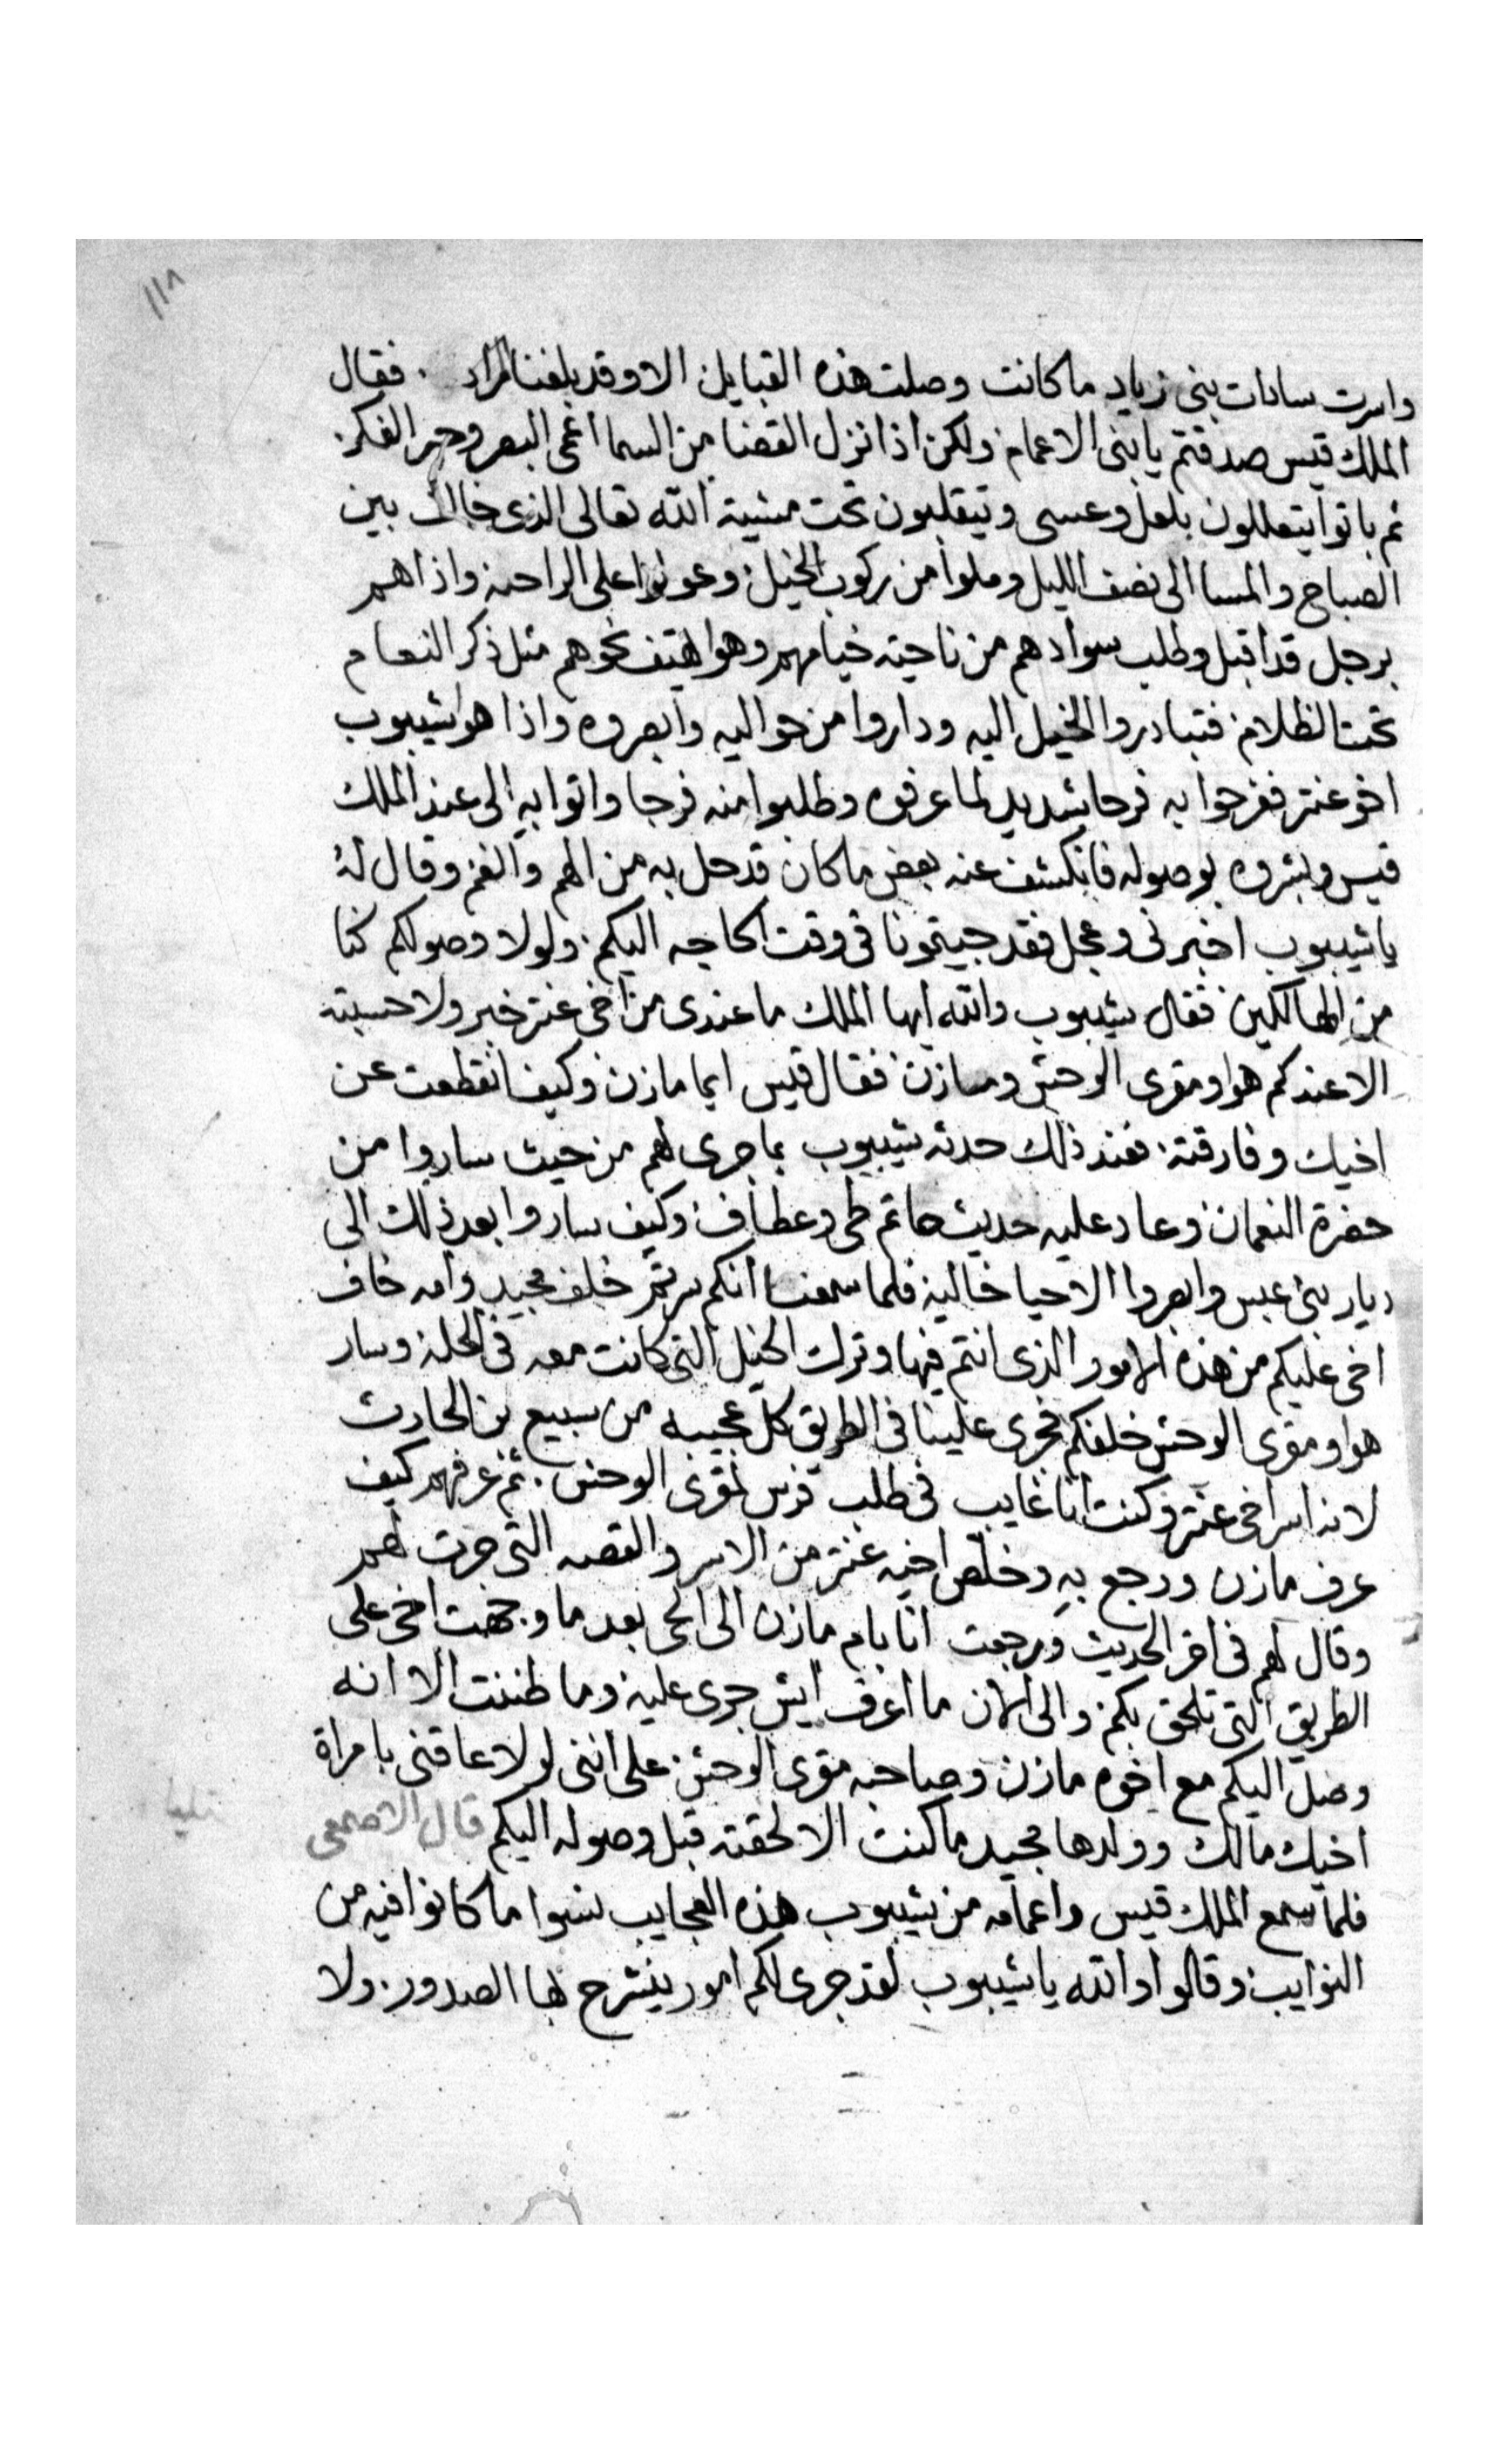 ١١٨
واسرت سادات بنى زياد ما كانت وصلت هذه القبايل الا وقد بلغنا المراد . فقال
الملك قيس صدقتم يا بنى الاعمام ولكن اذا نزل القضا من السما اعمى البصر وحير الفكر.
ثم باتوا يتعللون بلعل وعسى ويتقلبون تحت مشية الله تعالى الذى بين
الصباح والمسا الى نصف الليل وملوا من ركوب الخيل وعولوا على الراحه واذا هم
برجل قد اقبل وطلب سوادهم من ناحية خيامهم وهوا هتف نحوهم مثل ذكر النعام
تحت الظلام فتبادروا الخيل اليه وداروا من حواليه وابصروه واذا هوا شيبوب
اخو عنتر ففرحوا به فرحا شديد لما عرفوه وطلبوا منه فرجا واتوا به الى عند الملك
قيس وبشروه بوصوله فانكشف عنه بعض ما كان قد حل به من الهم والغم وقال له
يا شيبوب اخبرنى وعجل فقد جيتمونا فى وقت الحاجه اليكم. ولولا وصولكم كنا
من الهالكين فقال شيبوب والله ايها الملك ما عندى من اخى عنتر خبر ولا حسبته
الا عندكم هوا ومقرى الوحش ومازن فقال قيس ايما مازن وكيف انقطعت عن
اخيك وفارقته. فعند ذلك حدثه شيبوب بما جرى لهم من حيث ساروا من
حضرة النعمان وعاد عليه حديث حاتم طى وعطاف وكيف ساروا بعد ذلك الى
ديار بنى عبس وابصروا الاحيا خاليه فلما سمعنا انكم سرتم خلف مجيد وامه خاف
اخى عليكم من هذه الامور الذى انتم فيها وترك الخيل التى كانت معه فى الحله وسار
هوا ومقرى الوحش خلفكم فجرى علينا فى الطريق كل عجيبه من سبيع بن الحارث
لانه اسر اخى عنتر وكنت انا غايب فى طلب فرس لمقرى الوحش. ثم عرفهم كيف
عرف مازن ورجع به وخلص اخيه عنتر من الاسر والقصه التى جرت لهم
وقال لهم فى اخر الحديث ورجعت انا بام مازن الى الحى بعد ما وجهت اخى على
الطريق التى تلحق بكم. والى الان ما اعرف ايش جرى عليه وما ظننت الا انه
وصل اليكم مع اخوه مازن وصاحبه مقرى الوحش. على اننى لولا عاقنى بامراة
اخيك مالك وولدها مجيد ما كنت الا لحقته قبل وصوله اليكم قال الاصمعى
فلما سمع الملك قيس واعمامه من شيبوب هذه العجايب نسوا ما كانوا فيه من
النوايب وقالوا والله يا شيبوب لقد جرى لكم امور ينشرح لها الصدور. ولا